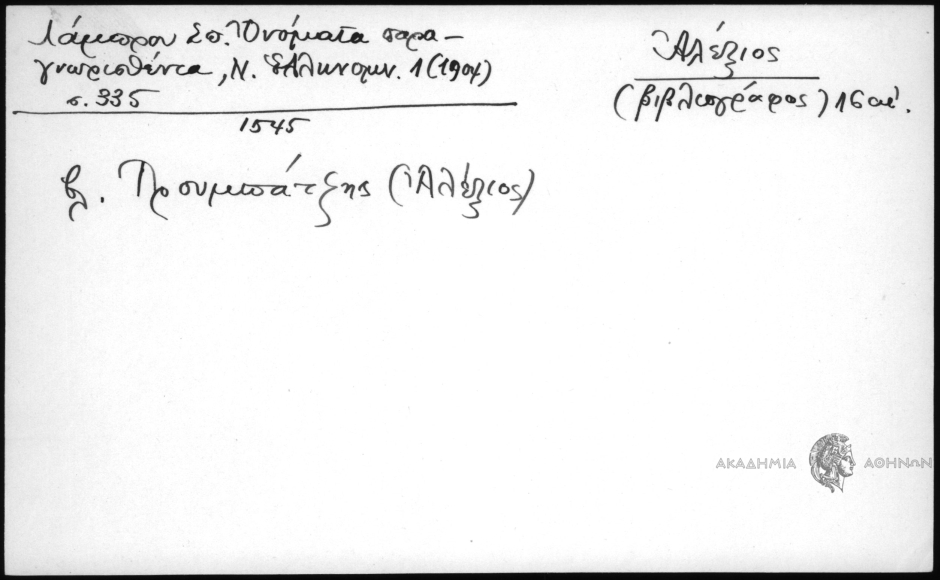 Λάμπρου Σπ. Ὀνόματα παρα-
γνωρισθέντα, Ν. Ἑλληνομν. 1 (1904)
σ. 335
1545
Ἀλέξιος
(βιβλιογράφος) 16 αἰ.
βλ. Προυμπάτζης (Ἀλέξιος)
ΑΚΑΔΗΜΙΑ ΑΘΗΝΩΝ